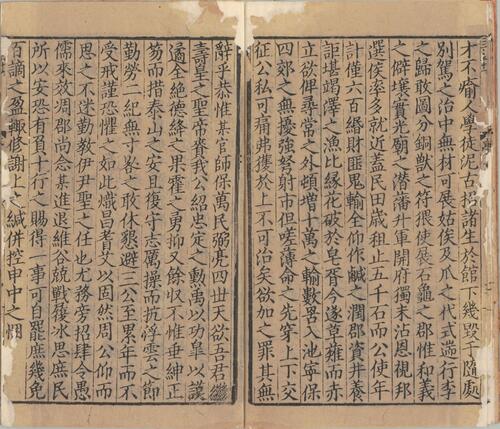 才不瘉人學徒泥古招諸生於館下幾毀于隨處
別駕之治中無材可展姑俟及瓜之代式遄行李
之歸敢圖分銅獸之符猥使展石龜之郡惟和義
之僻壤實光廟之潛藩升軍開府獨未沾恩視邦
選侯率多就近蓋民田歲租止五千石而公使年
計僅六百緡財匪鬼輸全仰作鹹之潤郡資井養
詎堪竭澤之漁比緣花破於皂胥今遂草雍而赤
立欲俾尋常之外頓增十萬之輸數畧又池寧保
四郊之無擾強弩射市但嗟薄命之先穿上下交
征公私可痛弗獲於上不可治矣欲加之罪其無
辭乎恭惟某官師保萬民弼亮四世天欲五君繼
壽星之聖帝賚我公紹忠定之勳萬以功皐以謨
適全絕德絳之果霍之勇抑又餘收不惟垂紳正
笏而措泰山之安且復守志厲操而抗浮雲之節
勤勞二紀無寸咎之敢休懇避三公至累年而不
受戒謹恐懼之如此熾昌耆艾以固然周公仰而
思之不迷勤教伊尹聖之任也尤務旁招肆令愚
儒來效凋郡尚念某進退維谷兢戰履冰思庶民
所以安恐有負十行之賜得一事可自罷庶幾免
百謫之盈輙修謝上之緘併控申中之悃